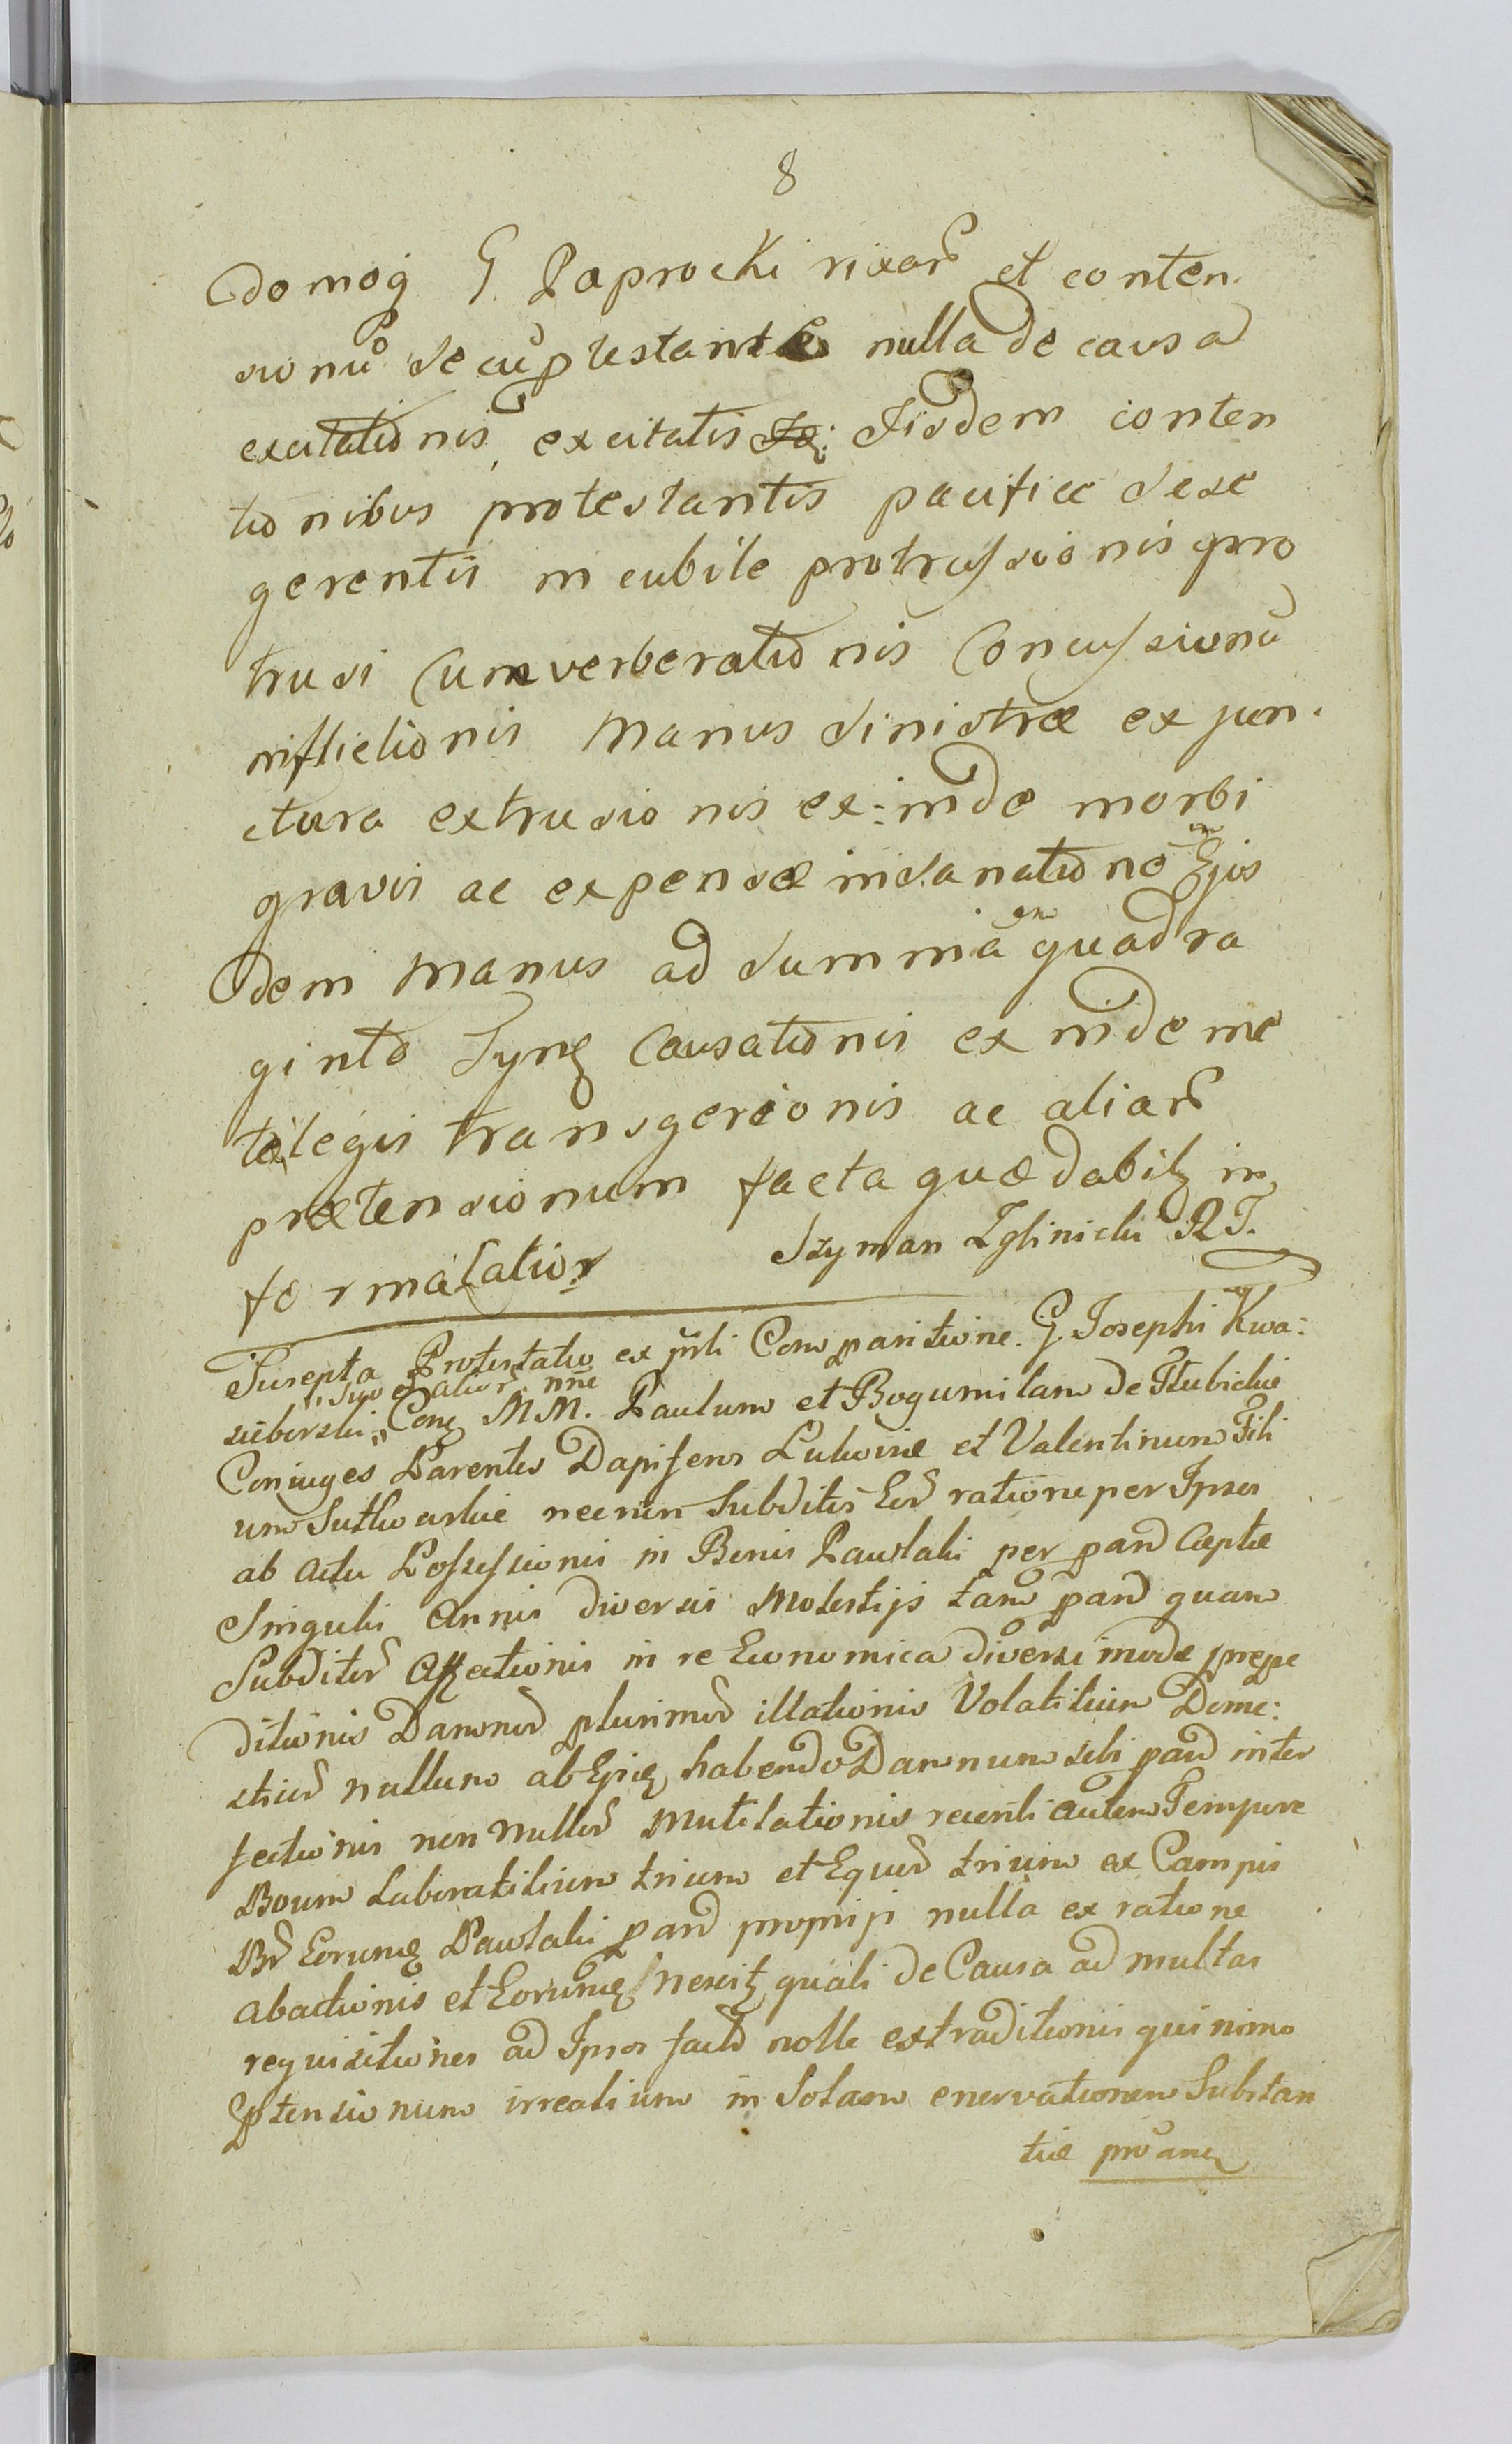 8
domog G. Paprocki rixar et conten.
sionu secu ptestante nulla de causa
excitationis excitatis Iisdem conten
tionibus protestantis pacifice sese
gerentis in cubile protrussionis pro
trusi Cum verberationis Concussionu
inflictionis Manus sinistræ ex jun.
ctura extrusionis ex:inde morbi
gravis ac expensæ in sanatione Ejus
dem Manus ad summa quadra
ginta Tynf Causationis ex inde me
tælegis transgerionis ac aliar
prætensionum facta quæ dabitz in
formatatior Szyman Iglinicki
Suscepta Protestatio ex psli Comparitione G. Josephi Kwa:
suo et alior nne
sieborski Conq MM. Paulum et Bogumilam de Hlubickie
Coniuges Parentes Dapiferos Lukoviæ et Valentinum Fili
um Suchcarskie necnon Subditos Eor ratione per Ipsos
ab actu Possessionis in Bonis Pawlaki per pand Ceptæ
Singulis Annis diversis Molestijs tam pand quam
Subditor Affectionis in re Economica diversimode præpe
ditionis Damnor plurimor illationis Volatilium Dome:
sticor nullum ab Ejus habendo Damnum sibi pand inter
fectionis non nullor Mutilationis recenti autem Tempore
Boum Laboratilium trium et Equor trium ex Campis
Br Eorumq Pawlaki pand proprijs nulla ex ratione
abactionis et Eorumq nescitz quali de Causa ad multas
requisitiones ad Ipsos factas nolle extraditionis quinimo
ptensionum irrealium in Solam enervationem Substan
tiæ proaneq